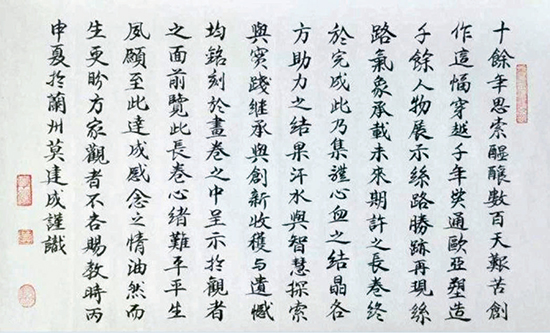 十餘年思索醞釀數百天艱苦創
作這幅穿越千年貫通歐亞塑造
千餘人物展示絲路勝跡再現絲
路氣象承載未來期許之長卷終
於完成此乃集體心血之結晶各
方助力之結果汗水與智慧探索
與實踐継承與創新收穫与遺憾
均銘刻於畫卷之中呈示於觀者
之面前覽此長卷心緒難平平生
夙願至此達成感念之情油然而
生更盼方家觀者不吝賜教時丙
申夏於蘭州莫建成謹識